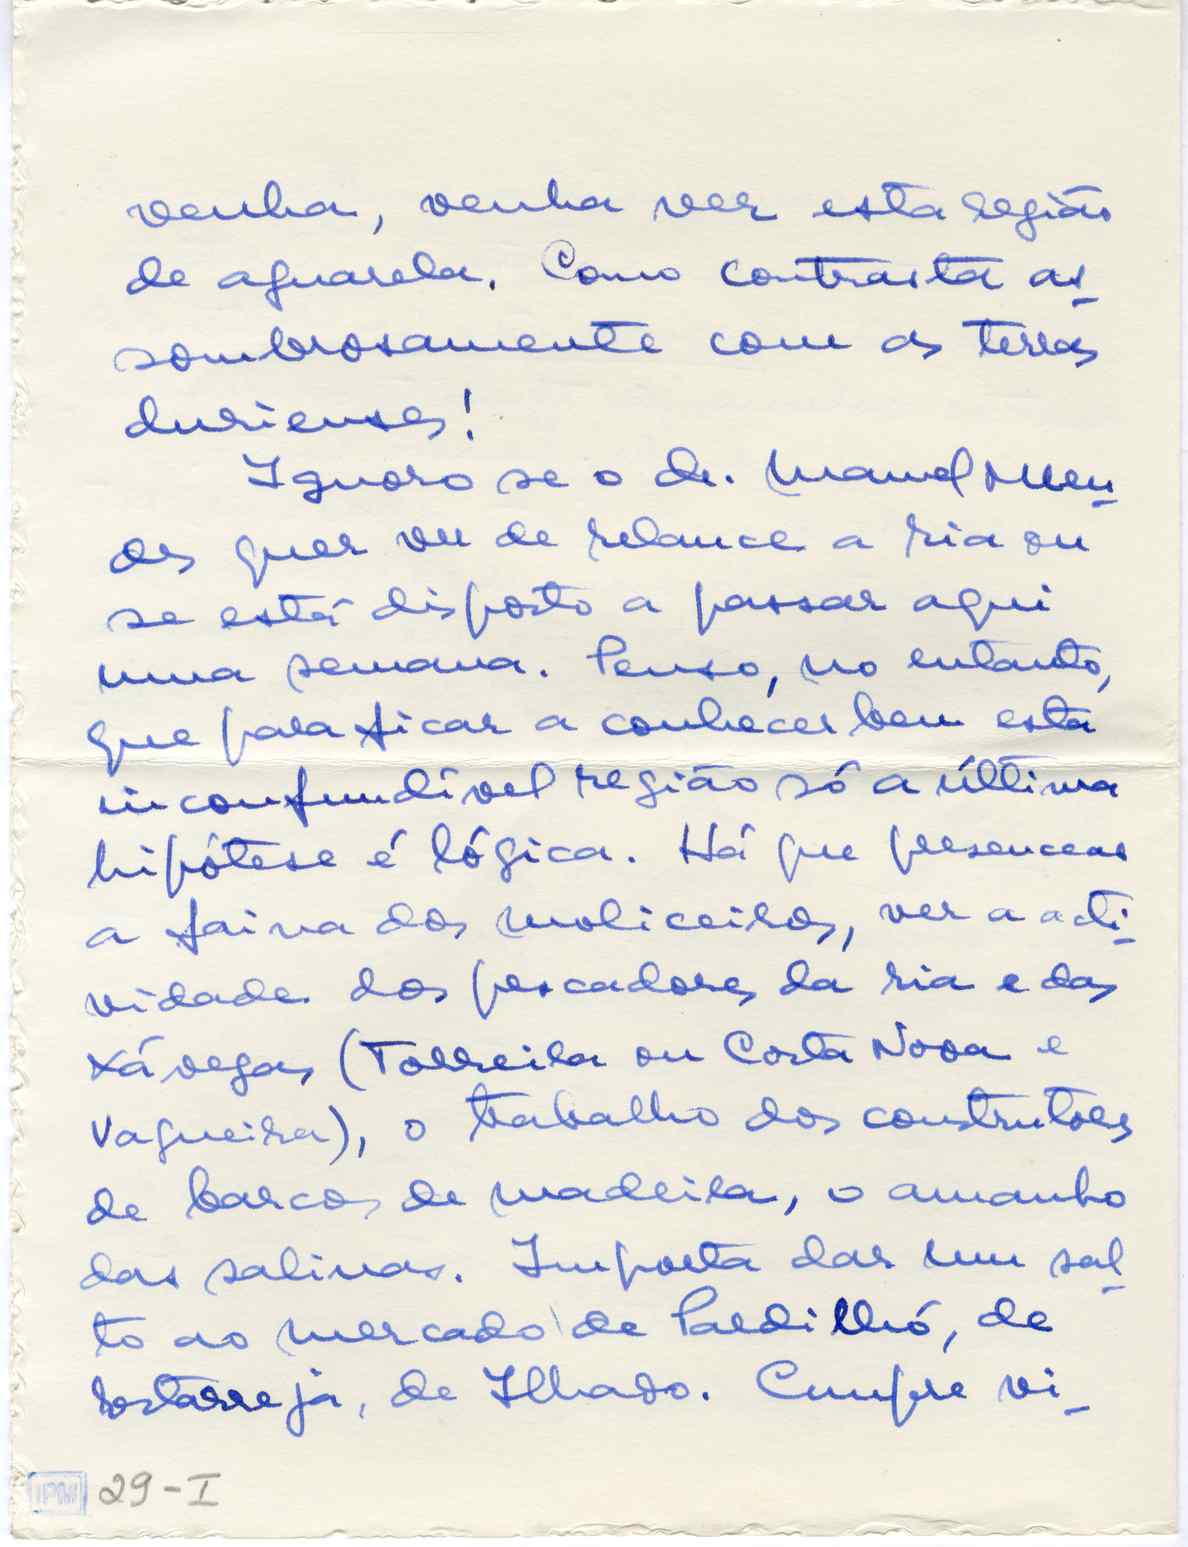 venha, venha ver esta região
de aguarela. Como contrasta as-
sombrosamente com as terras
durienses!
Ignoro se o dr. Manuel Men-
des quer ver de relance a ria ou
se está disposto a passar aqui
uma semana. Penso, no entanto,
que para ficar a conhecer bem esta
inconfundível região só a última
hipótese é lógica. Há que presencear
a faina dos moliceiros, ver a acti-
vidade dos pescadores da ria e das
xávegas (Torreira ou Costa Nova e
Vagueira), o trabalho dos construtores
de barcos de madeira, o amanho
das salinas. Importa dar um sal-
to ao mercado de Pardilhó, de
Estarreja, de Ílhavo. Cumpre vi-
29-I